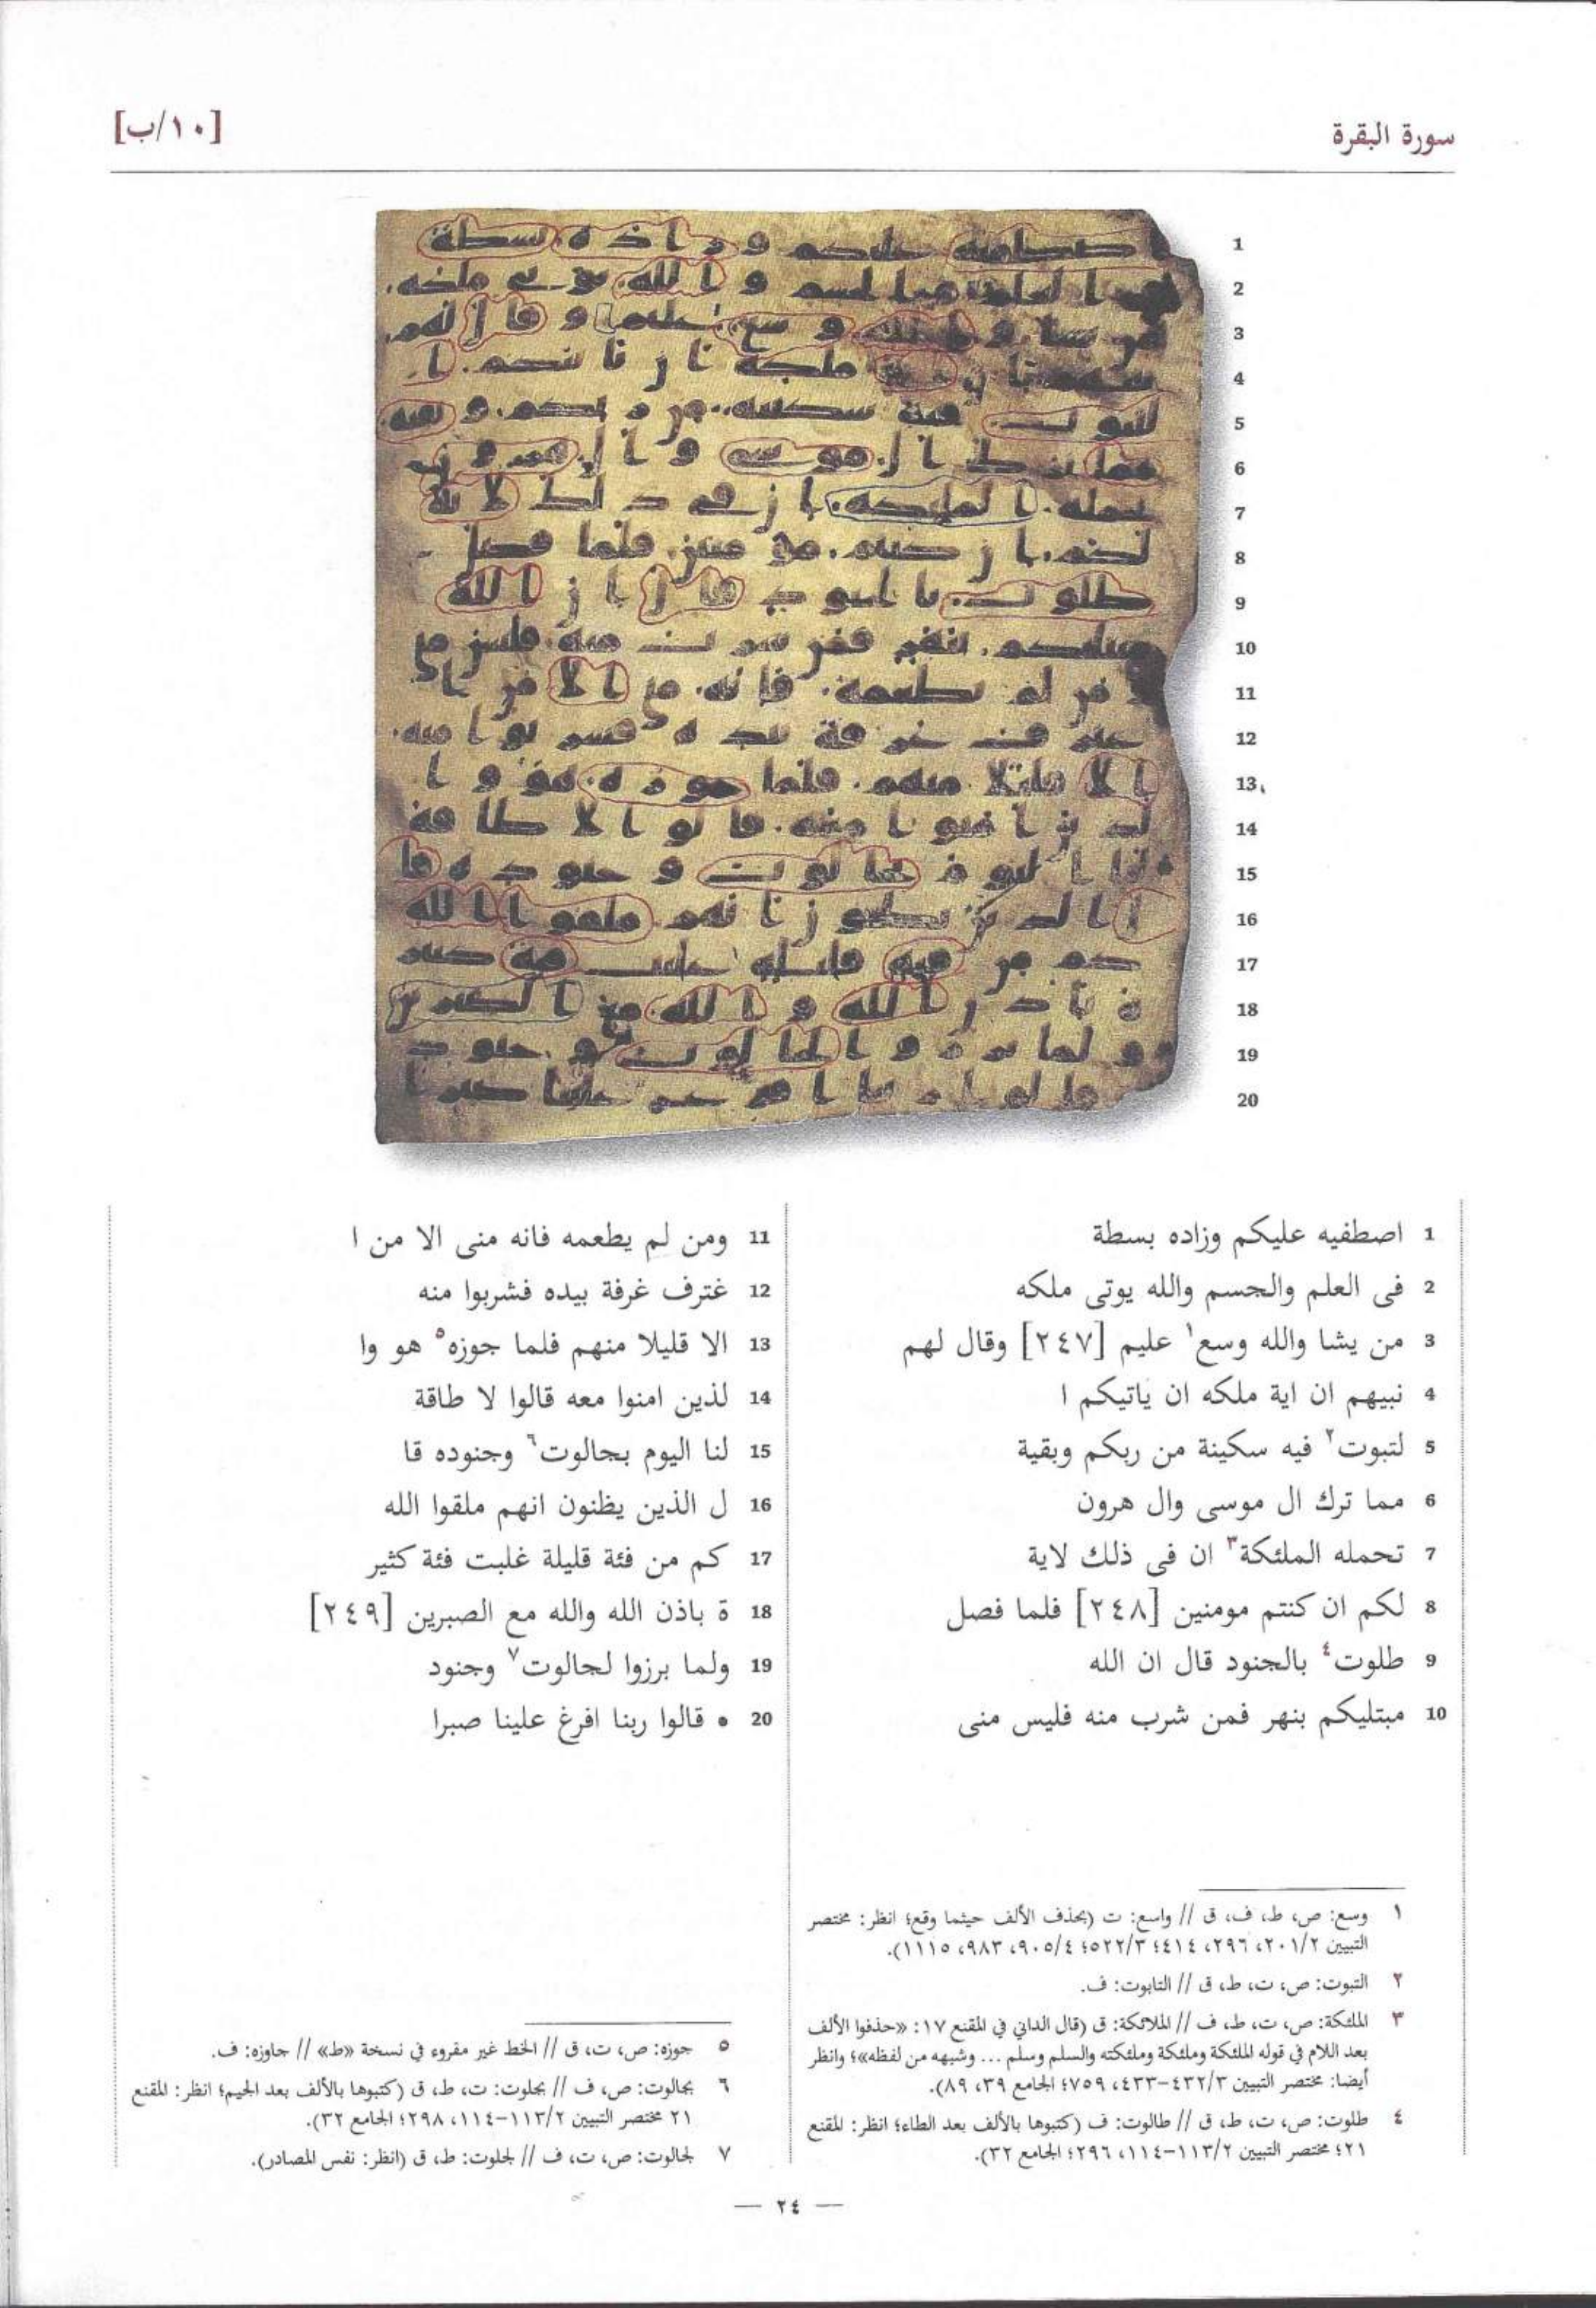 سورة البقرة
[١٠/ب]
1
2
3
4
5
6
7
8
9
10
11
12
13
14
15
16
17
18
19
20
1 اصطفيه عليكم وزاده بسطة
2 فى العلم والجسم والله يوتى ملكه
3 من يشا والله وسع١ عليم [٢٤٧] وقال لهم
4 نبيهم ان اية ملكه ان ياتيكم ا
5 لتبوت٢ فيه سكينة من ربكم وبقية
6 مما ترك ال موسى وال هرون
7 تحمله الملئكة٣ ان فى ذلك لاية
8 لكم ان كنتم مومنين [٢٤٨] فلما فصل
9 طلوت٤ بالجنود قال ان الله
10 مبتليكم بنهر فمن شرب منه فليس منى
11 ومن لم يطعمه فانه منى الا من ا
12 غترف غرفة بيده فشربوا منه
13 الا قليلا منهم فلما جوزه٥ هو وا
14 لذين امنوا معه قالوا لا طاقة
15 لنا اليوم بجالوت٦ وجنوده قا
16 ل الذين يظنون انهم ملقوا الله
17 كم من فئة قليلة غلبت فئة كثير
18 ة باذن الله والله مع الصبرين [٢٤٩]
19 ولما برزوا لجالوت٧ وجنود
20 ه قالوا ربنا افرغ علينا صبرا
١ وسع: ص، ط، ف، ق // واسع: ت (بحذف الألف حيثما وقع؛ انظر: مختصر
التبيين ٢٠١/٢، ٢٩٦، ٤١٤؛ ٥٢٢/٣؛ ٩٠٥/٤، ٩٨٣، ١١١٥).
٢ التبوت: ص، ت، ط، ق // التابوت: ف.
٣ الملئكة: ص، ت، ط، ف // الملائكة: ق (قال الداني في المقنع ١٧: «حذفوا الألف
بعد اللام في قوله الملئكة وملئكة وملئكته والسلم وسلم ... وشبهه من لفظه»؛ وانظر
أيضا: مختصر التبيين ٤٣٢/٣-٤٣٣، ٧٥٩؛ الجامع ٣٩، ٨٩).
٤ طلوت: ص، ت، ط، ق // طالوت: ف (كتبوها بالألف بعد الطاء؛ انظر: المقنع
٢١؛ مختصر التبيين ١١٣/٢-١١٤، ٢٩٦؛ الجامع ٣٢).
٥ جوزه: ص، ت، ق // الخط غير مقروء في نسخة «ط» // جاوزه: ف.
٦ بجالوت: ص، ف // بجلوت: ت، ط، ق (كتبوها بالألف بعد الجيم؛ انظر: المقنع
٢١ مختصر التبيين ١١٣/٢-١١٤، ٢٩٨؛ الجامع ٣٢).
٧ لجالوت: ص، ت، ف // لجلوت: ط، ق (انظر: نفس المصادر).
— ٢٤ —